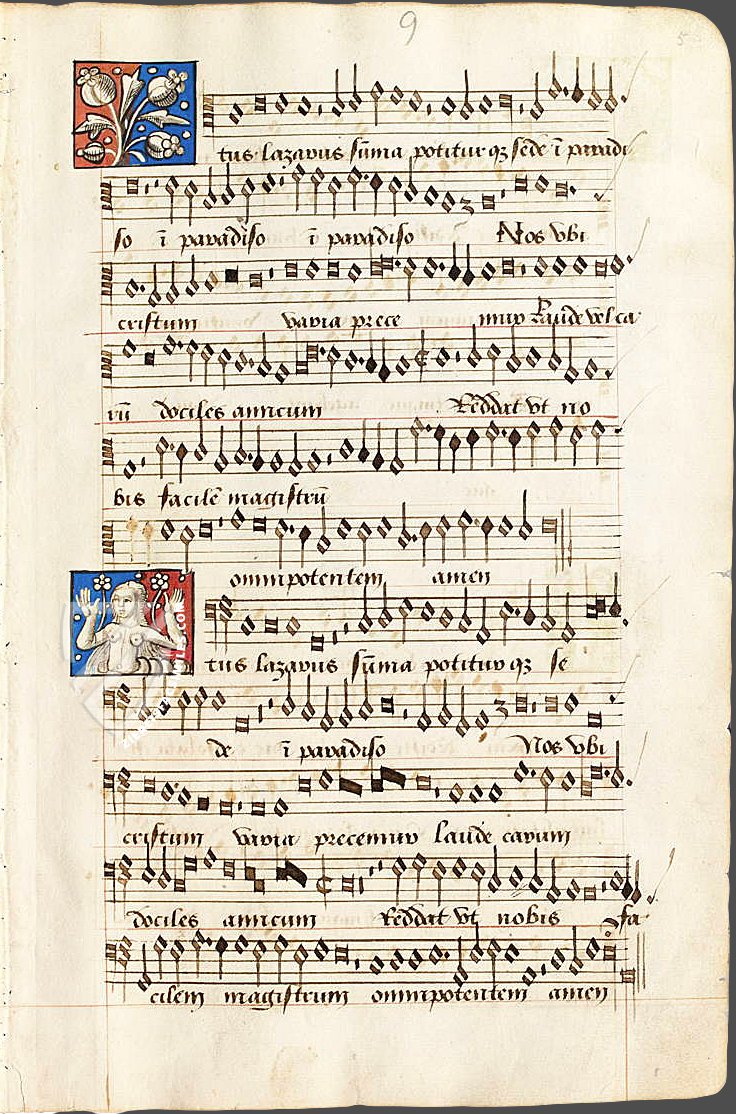 9
5
tus lazarus sūma potitur qz sēde ī paradi
so ī paradiso ī paradiso Nos vbi
cristum varia prece mur Laude vel ca
rū dociles amicum Reddat vt no
bis facilē magistrū
omnipotentem amen
tus lazarus sūma potitur qz se
de ī paradiso Nos vbi
cristum varia precemur laude carum
dociles amicum Reddat vt nobis fa
cilem magistrum omnipotentem amen